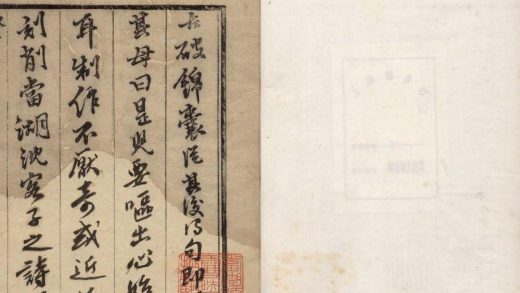 古破錦囊從其後得句即
其母曰是兒要嘔出心始
耳制作不厭奇或近
刻削當湖沈客子之詩